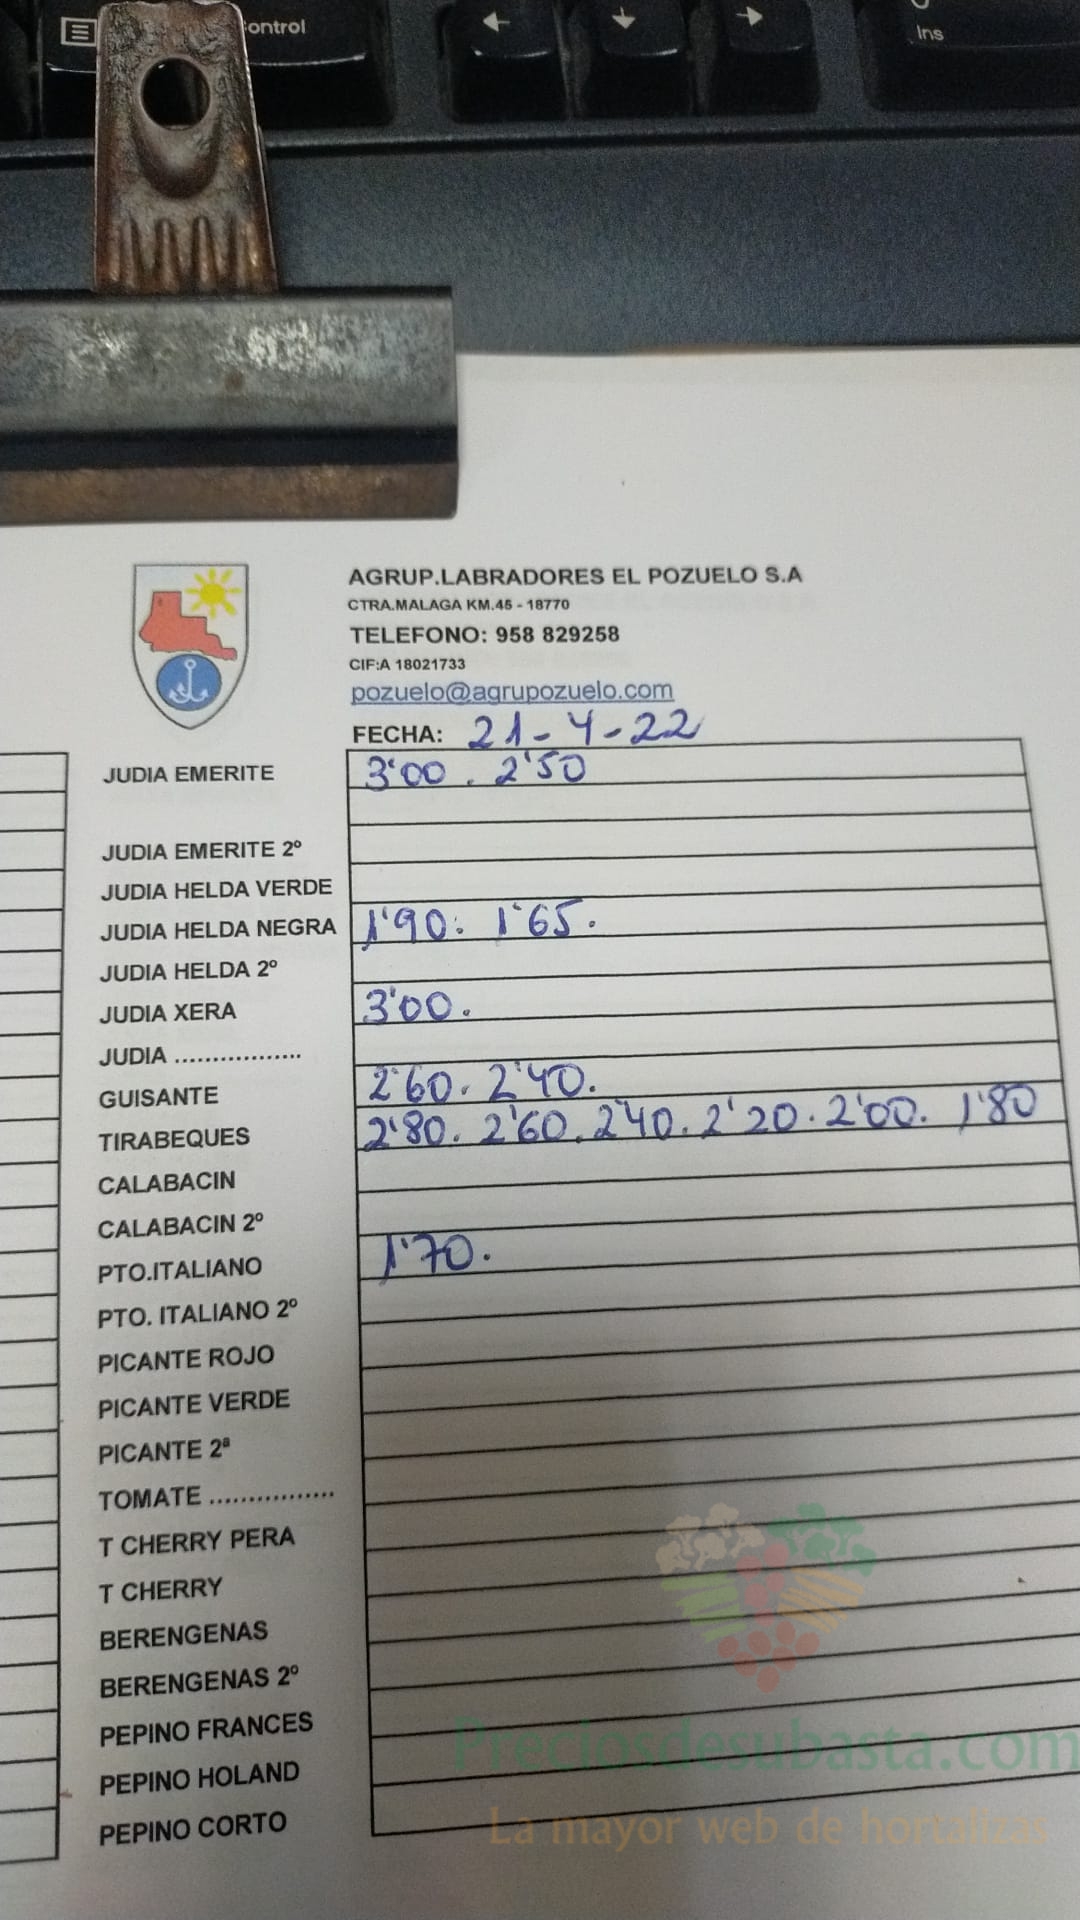 ontrol
Ins
AGRUP.LABRADORES EL POZUELO S.A
CTRA.MALAGA KM.45 - 18770
TELEFONO: 958 829258
CIF:A 18021733
pozuelo@agrupozuelo.com
FECHA: 21-4-22
JUDIA EMERITE 3'00. 2'50
JUDIA EMERITE 2º
JUDIA HELDA VERDE
JUDIA HELDA NEGRA 1'90. 1'65.
JUDIA HELDA 2º
JUDIA XERA 3'00.
JUDIA .................
GUISANTE 2'60. 2'40.
TIRABEQUES 2'80. 2'60. 2'40. 2'20. 2'00. 1'80
CALABACIN
CALABACIN 2º
PTO.ITALIANO 1'70.
PTO. ITALIANO 2º
PICANTE ROJO
PICANTE VERDE
PICANTE 2ª
TOMATE ................
T CHERRY PERA
T CHERRY
BERENGENAS
BERENGENAS 2º
PEPINO FRANCES
PEPINO HOLAND
PEPINO CORTO
Preciosdesubasta.com
La mayor web de hortalizas